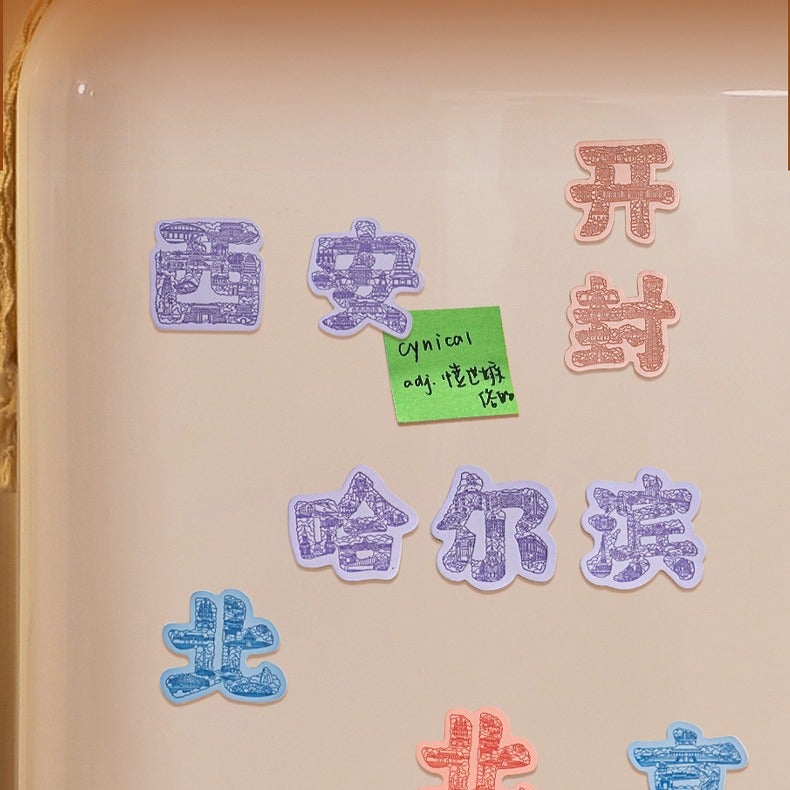 西安
开封
cynical
adj. 愤世嫉
俗的
哈尔滨
北
北
京